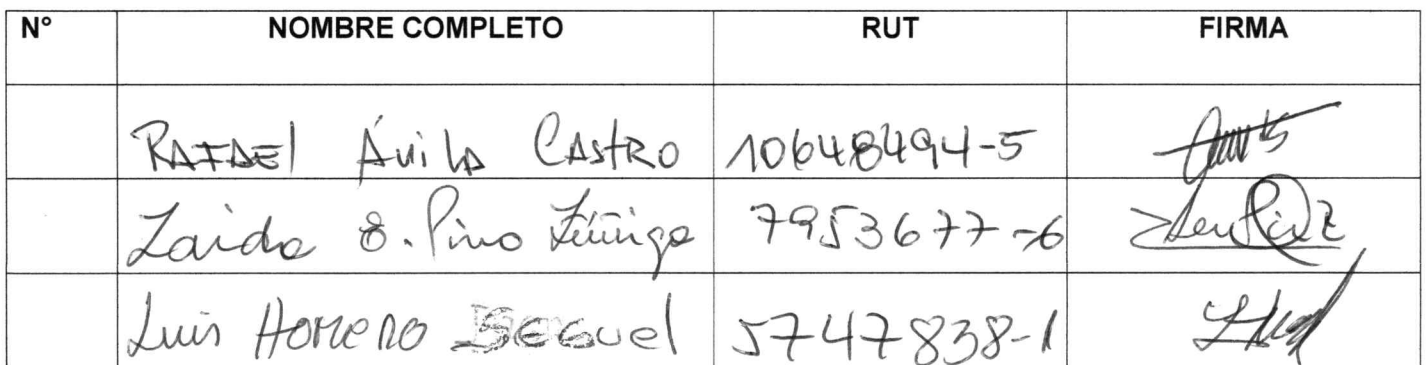 N° NOMBRE COMPLETO RUT FIRMA
RAFAEL Ávila CAstRO 10648494-5
Zaida E. Pino Zúñiga 7953677-6
Luis Homero SEGuel 5747838-1